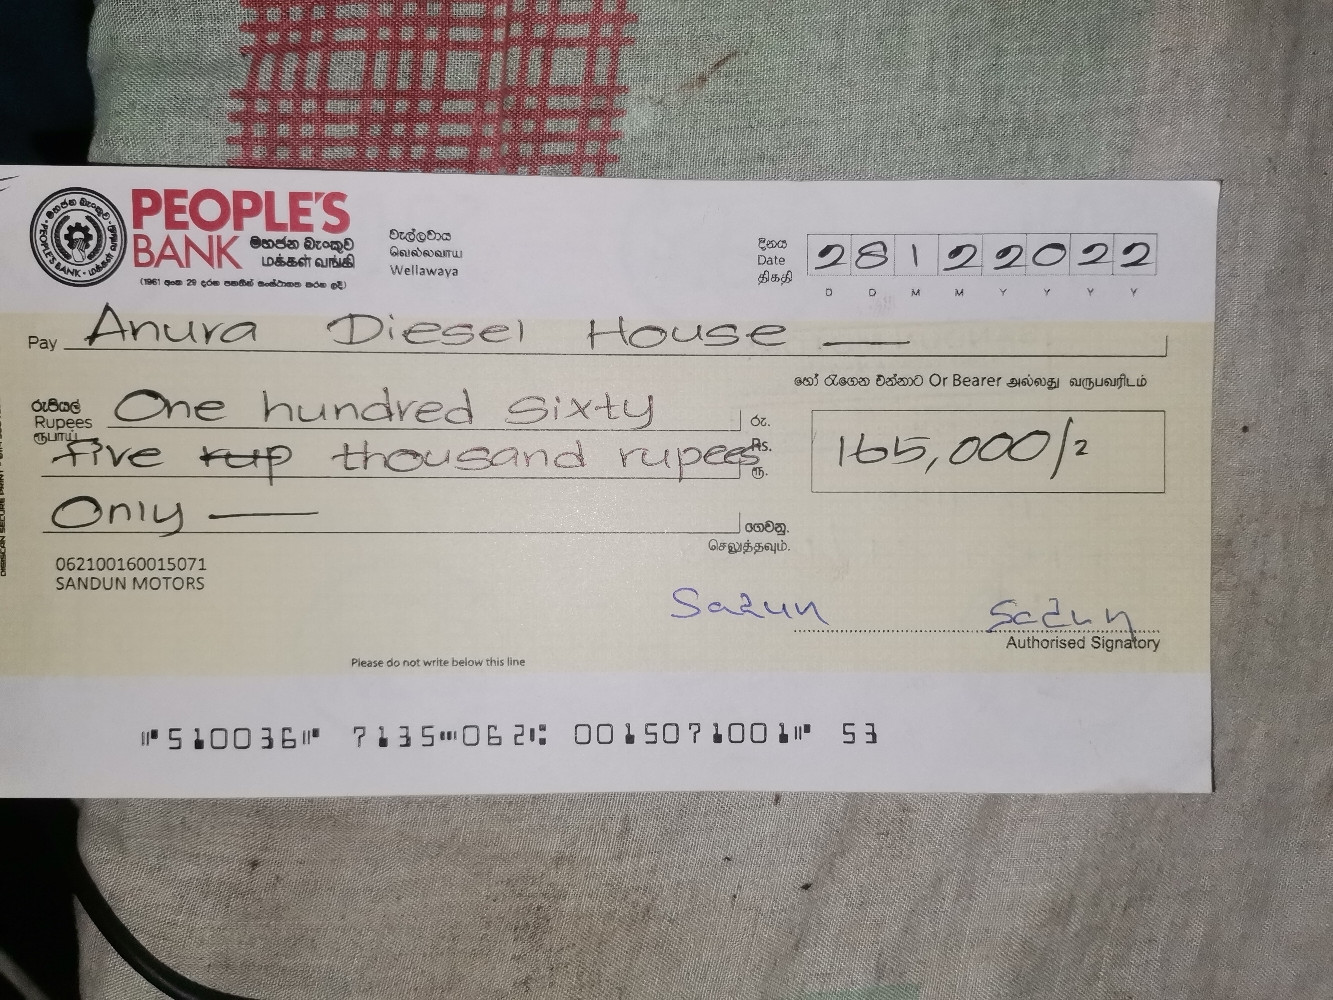 PEOPLE'S
BANK මහජන බැංකුව
மக்கள் வங்கி
(1961 අංක 29 දරන පනතින් සංස්ථාපිත කරන ලදි)
වැල්ලවාය
வெல்லவாய
Wellawaya
දිනය
Date
திகதி
2 8 1 2 2 0 2 2
D D M M Y Y Y Y
Pay Anura Diesel House
හෝ රැගෙන එන්නාට Or Bearer அல்லது வருபவரிடம்
රුපියල්
Rupees
ரூபாய்
One hundred sixty
five rup thousand rupees
Only
රු.
Rs.
ரூ.
165,000/2
ගෙවනු.
செலுத்தவும்.
062100160015071
SANDUN MOTORS
Authorised Signatory
Please do not write below this line
510036 7135 062 0015071001 53